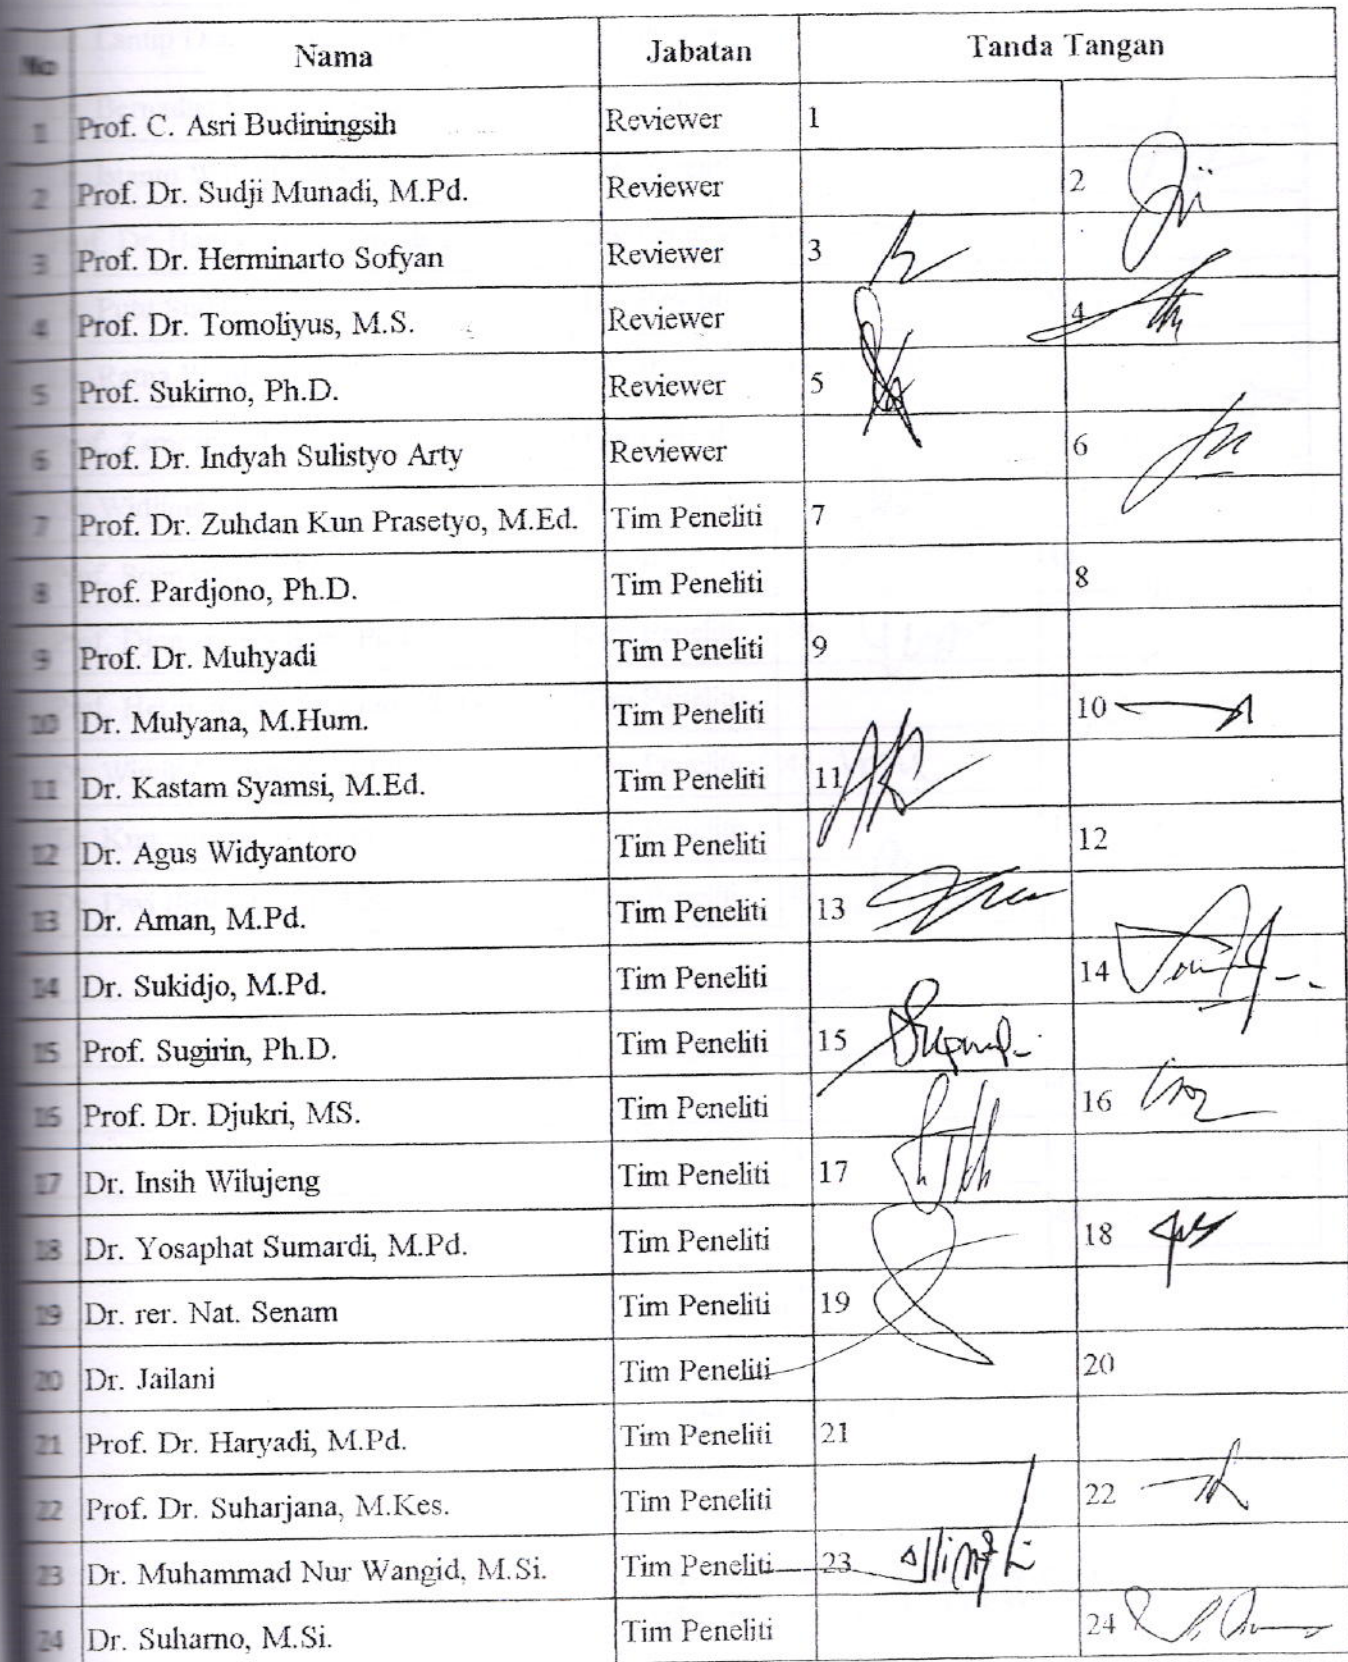 No Nama Jabatan Tanda Tangan
1 Prof. C. Asri Budiningsih Reviewer 1
2 Prof. Dr. Sudji Munadi, M.Pd. Reviewer 2
3 Prof. Dr. Herminarto Sofyan Reviewer 3
4 Prof. Dr. Tomoliyus, M.S. Reviewer 4
5 Prof. Sukirno, Ph.D. Reviewer 5
6 Prof. Dr. Indyah Sulistyo Arty Reviewer 6
7 Prof. Dr. Zuhdan Kun Prasetyo, M.Ed. Tim Peneliti 7
8 Prof. Pardjono, Ph.D. Tim Peneliti 8
9 Prof. Dr. Muhyadi Tim Peneliti 9
10 Dr. Mulyana, M.Hum. Tim Peneliti 10
11 Dr. Kastam Syamsi, M.Ed. Tim Peneliti 11
12 Dr. Agus Widyantoro Tim Peneliti 12
13 Dr. Aman, M.Pd. Tim Peneliti 13
14 Dr. Sukidjo, M.Pd. Tim Peneliti 14
15 Prof. Sugirin, Ph.D. Tim Peneliti 15
16 Prof. Dr. Djukri, MS. Tim Peneliti 16
17 Dr. Insih Wilujeng Tim Peneliti 17
18 Dr. Yosaphat Sumardi, M.Pd. Tim Peneliti 18
19 Dr. rer. Nat. Senam Tim Peneliti 19
20 Dr. Jailani Tim Peneliti 20
21 Prof. Dr. Haryadi, M.Pd. Tim Peneliti 21
22 Prof. Dr. Suharjana, M.Kes. Tim Peneliti 22
23 Dr. Muhammad Nur Wangid, M.Si. Tim Peneliti 23
24 Dr. Suharno, M.Si. Tim Peneliti 24